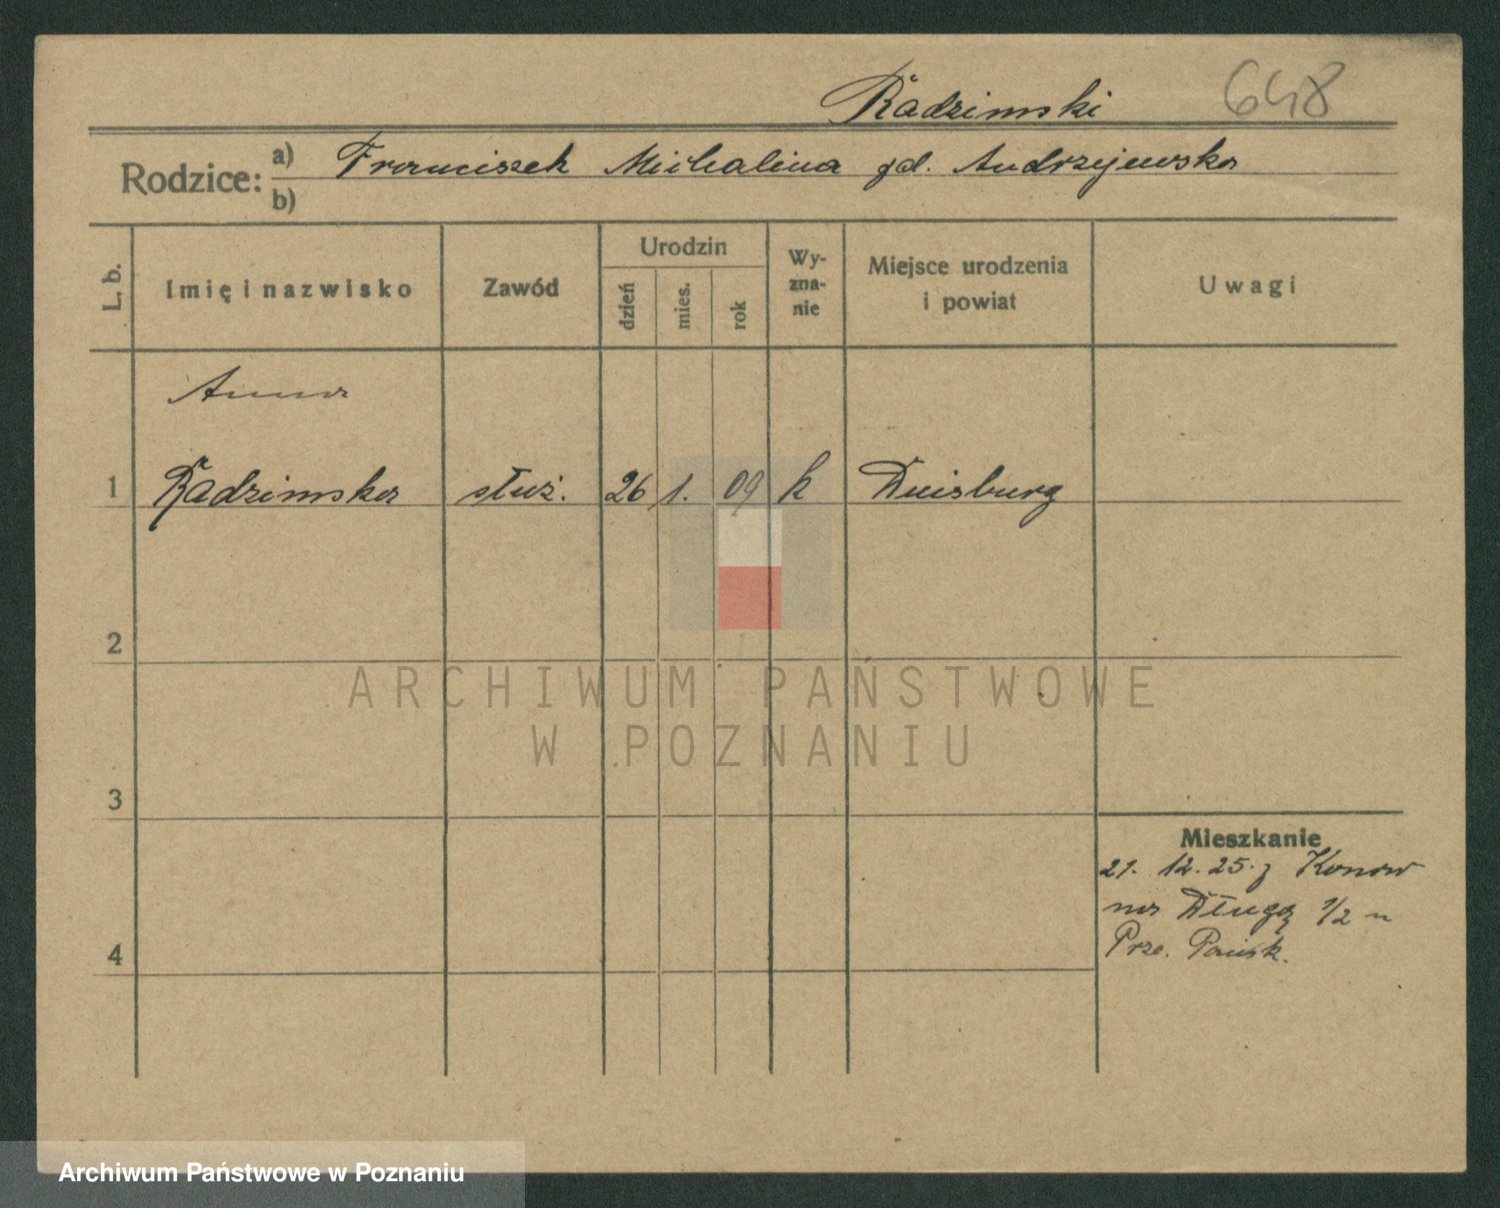 Radzimski 648
Rodzice: a) Franciszek Michalina gd. Andrzejewska
b)
L. b. Imię i nazwisko Zawód Urodzin dzień mies. rok Wyzna-nie Miejsce urodzenia i powiat Uwagi
Anna
1 Radzimska służ. 26 1. 09 k Duisburg
2
ARCHIWUM PAŃSTWOWE
W POZNANIU
3
Mieszkanie
21. 12. 25. z Konow
na Długą 1/2 u
4 Prze. Pańsk.
Archiwum Państwowe w Poznaniu